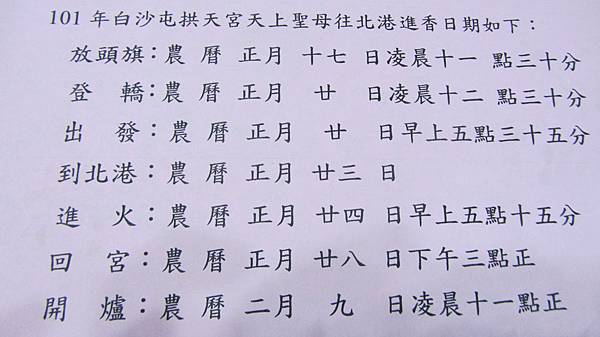 101年白沙屯拱天宮天上聖母往北港進香日期如下：
放頭旗：農 曆 正月 十七 日凌晨十一 點三十分
登 轎：農 曆 正月 廿 日凌晨十二 點三十分
出 發：農 曆 正月 廿 日早上五點三十五分
到北港：農 曆 正月 廿三 日
進 火：農 曆 正月 廿四 日早上五點十五分
回 宮：農 曆 正月 廿八 日下午三點正
開 爐：農 曆 二月 九 日凌晨十一點正